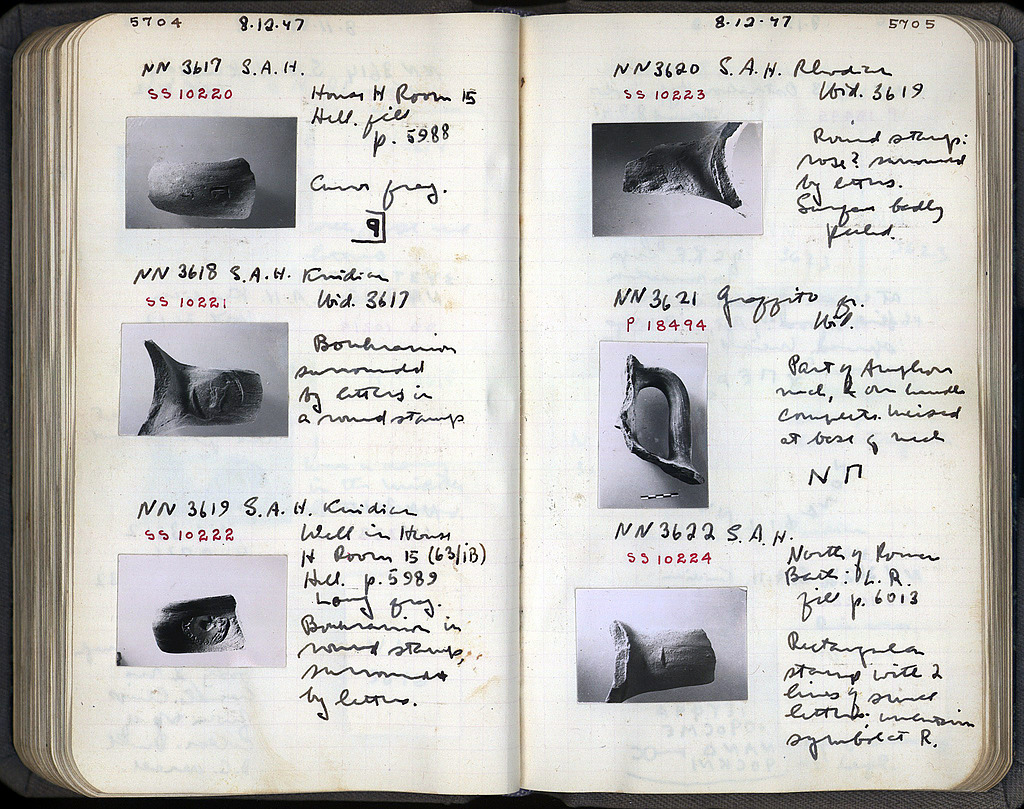 5704
8.12.47
NN 3617 S.A.H.
SS 10220
House H Room 15
Hell. fill
p. 5988
Curve frag.
NN 3618 S.A.H. Knidian
SS 10221
Ibid. 3617
Boukranion
surrounded
by letters in
a round stamp
NN 3619 S.A.H. Knidian
SS 10222
Well in House
H Room 15 (63/ΙΒ)
Hell. p. 5989
frag.
Boukranion in
round stamp,
surrounded
by letters.
8.12.47
5705
NN 3620 S.A.H. Rhodian
SS 10223
Ibid. 3619
Round stamp:
rose? surrounded
by letters.
Surface badly
peeled.
NN 3621 Graffito
P 18494
Ibid.
Part of Amphora
neck, & one handle
complete. Incised
at base of neck
ΝΠ
NN 3622 S.A.H.
SS 10224
North of Roman
Bath: L.R.
fill p. 6013
Rectangular
stamp with 2
lines of small
letters:
symbol at R.